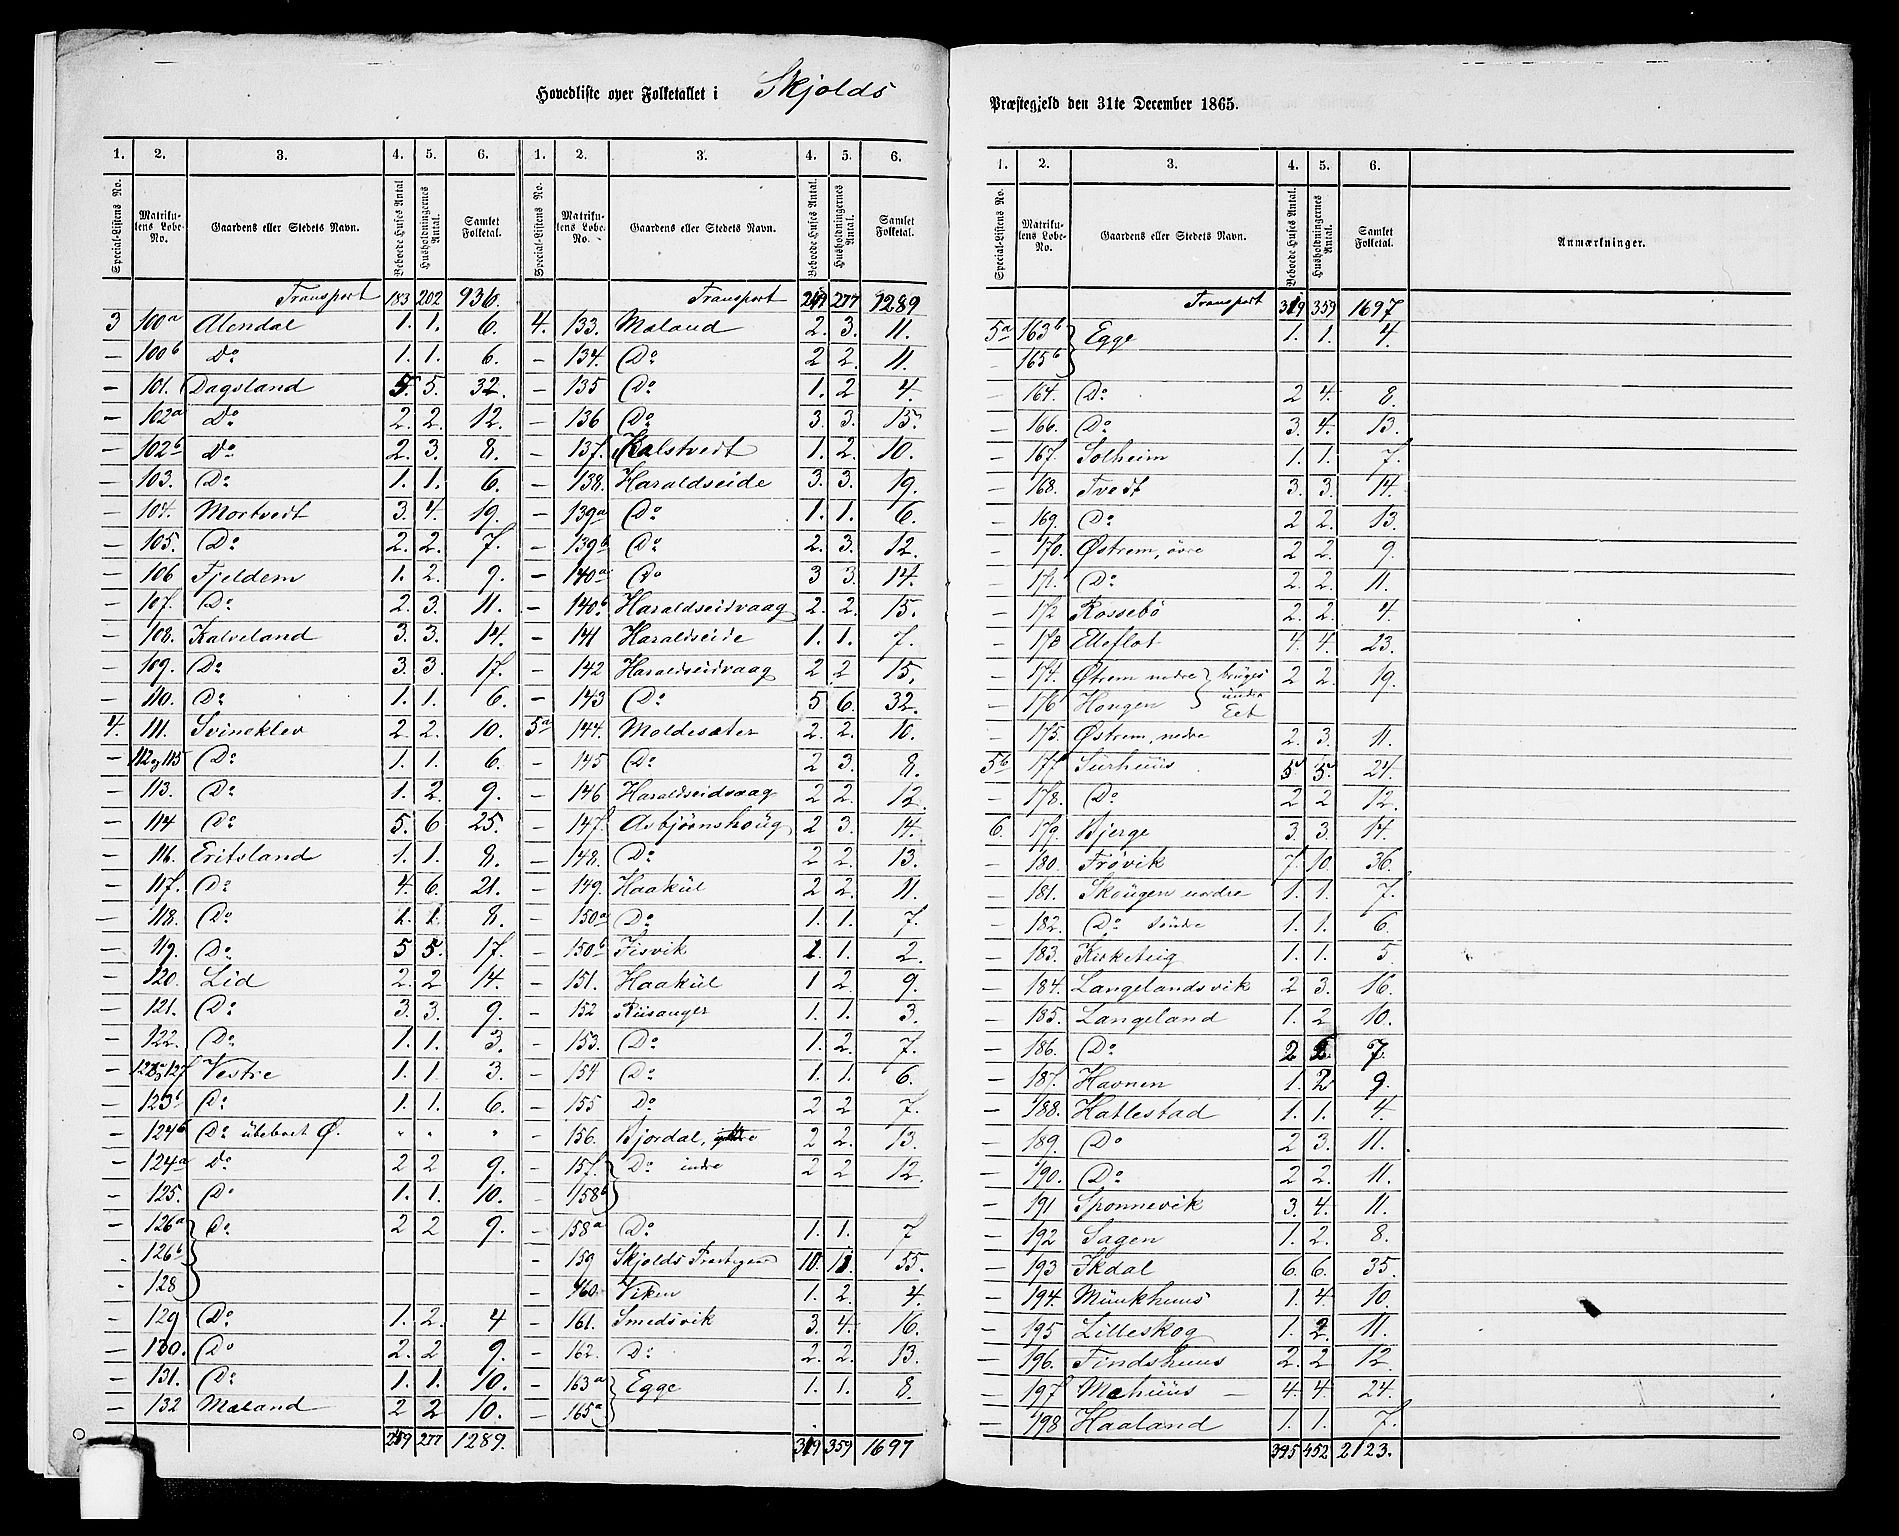 Hovedliste over Folketallet i Skjolds Præstegjeld den 31te December 1865.
1. 2. 3. 4. 5. 6. 1. 2. 3. 4. 5. 6.
Special-Listens No. Matrikulens Løbe-No. Gaardens eller Stedets Navn. Beboede Huses Antal Husholdningernes Antal. Samlet Folketal. Special-Listens No. Matrikulens Løbe-No. Gaardens eller Stedets Navn. Beboede Huses Antal. Husholdningernes Antal. Samlet Folketal.
Transport 183 202 936.
3 100a Alendal 1. 1. 6.
— 100b Do 1. 1. 6.
— 101. Dagsland 5. 5. 32.
— 102a Do 2. 2. 12.
— 102b Do 2. 3. 8.
— 103. Do 1. 1. 6.
— 104. Mortvedt 3. 4. 19.
— 105. Do 2. 2. 7.
— 106 Fjeldem 1. 2. 9.
— 107. Do 2. 3. 11.
— 108. Kalveland 3. 3. 14.
— 109. Do 3. 3. 17.
— 110. Do 1. 1. 6.
4. 111. Svineklev 2. 2. 10.
— 112 og 115 Do 1. 1. 6.
— 113. Do 1. 2. 9.
— 114 Do 5. 6 25.
— 116. Eritsland 1. 1. 8.
— 117. Do 4. 6. 21.
— 118. Do 1. 1. 8.
— 119. Do 5 5. 17.
— 120. Lid 2. 2 14.
— 121. Do 3. 3. 9.
— 122. Do 1. 1. 3.
— 127 Vestre 1. 1. 3.
— 123b Do 1. 1. 6.
— 124b Do ubeboet Ø. " " "
— 124a Do 2 2 9.
— 125. Do 1. 1. 10.
— 126a Do 2 2 9.
126b
128
— 129 Do 1. 2. 4
— 130. Do 2. 2 9.
— 131. Do 1. 1. 10.
— 132 Maland 2 2 10.
259 277 1289.
Transport 259 277 1289
4. 133. Maland 2. 3. 11.
— 134. Do 2 2. 11.
— 135 Do 1. 2 4.
— 136 Do 3. 3. 15.
— 137. Kalstvedt 1. 2. 10.
— 138. Haraldseide 3. 3. 19.
— 139a Do 1. 1. 6.
— 139b Do 2. 3. 12.
— 140a Do 3 3. 14.
— 140b Haraldseidvaag 2. 2. 15.
— 141 Haraldseide 1. 1. 7.
— 142 Haraldseidvaag 2 2 15.
— 143 Do 5 6 32.
5a 144. Moldesæter 2. 2. 10.
— 145 Do 2 3. 8.
— 146 Haraldseidvaag 2 2. 12.
— 147. Asbjørnshoug 2 3. 14.
— 148. Do 2 2. 13.
— 149. Haakul 2 2. 11.
— 150a Do 1. 1. 7.
— 150b Fisvik 1. 1. 2.
— 151. Haakul 1 2. 9.
— 152 Risanger 1. 1. 3.
— 153. Do 1. 2. 7.
— 154 Do 1. 1. 6.
— 155 Do 2 2 7.
— 156. Bjordal, 2 2. 13.
— 157. Do indre 2 2 12.
— 158b
— 158a Do 1. 1. 7
159 Skjolds Præstegaard 10. 11. 55.
— 160. Viken 1. 2. 4.
— 161. Smedsvik 3. 4. 16.
— 162. Do 2. 2. 13.
— 163a Egge 1. 1. 8.
— 165a
319 359 1697
1. 2. 3. 4. 5. 6.
Special-Listens No. Matrikulens Løbe-No. Gaardens eller Stedets Navn. Beboede Huses Antal. Husholdningernes Antal. Samlet Folketal. Anmærkninger.
Transport 319 359 1697
5a 163b Egge 1. 1. 4.
— 165b
— 164. Do 2 4. 8.
— 166. Do 3. 4. 13.
— 167. Solheim 1. 1. 7.
— 168. Tvedt 3. 3. 14.
— 169. Do 2 2. 13.
— 170. Østrem, øvre 2 2. 9.
— 171. Do 2. 2. 11.
— 172 Rossebø 2. 2. 4.
— 173 Elleflot 4. 4. 23.
— 174. Østrem nedre bruges under Eet 2 2. 19.
— 176 Hongen
— 175. Østrem, nedre 2. 3. 11.
5b 177 Surhuus 5 5. 24.
— 178. Do 2 2 12.
6. 179. Bjerge 3. 3. 14.
— 180. Frøvik 7. 10. 36.
— 181. Skougen nordre 1. 1. 7.
— 182. Do søndre 1. 1. 6.
— 183. Kirketeig 1. 1. 5.
— 184. Langelandsvik 2 3. 16.
— 185. Langeland 1. 2 10.
— 186. Do 2 7.
— 187. Havnen 1. 2 9.
— 188. Hatlestad 1. 1. 4.
— 189. Do 2 3. 11.
— 190. Do 2 2. 11.
— 191 Sponnevik 3. 4. 11.
— 192 Sagen 1. 2. 8.
— 193 Ikdal 6. 6. 35.
— 194. Munkhuus 1. 4. 10.
— 195 Lilleskog 1. 2. 11.
— 196. Findshuus 2. 2 12
— 197 Mehuus — 4. 4. 24.
— 198 Haaland 1. 1. 7.
395 452 2123.